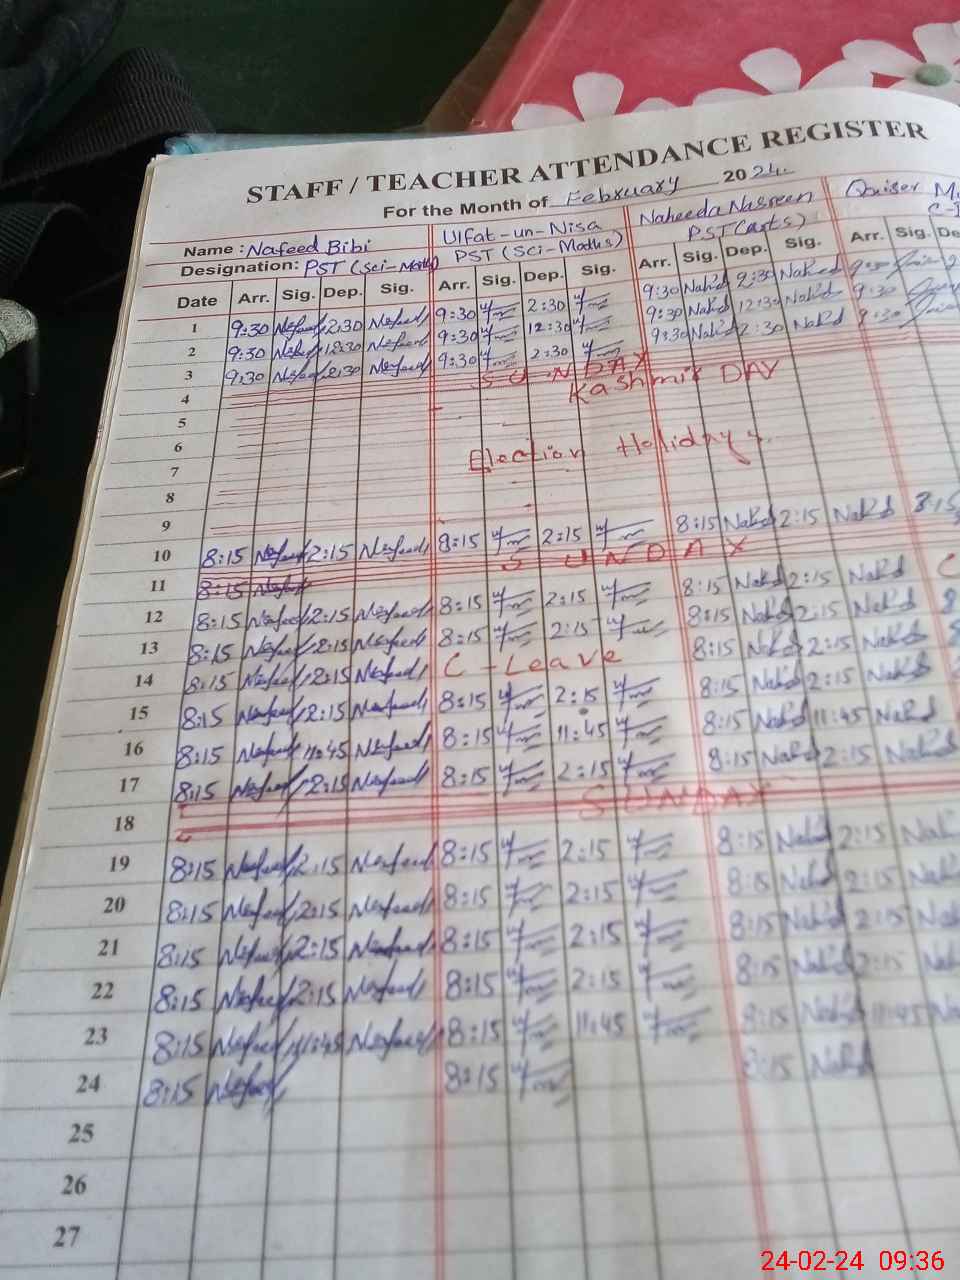 STAFF / TEACHER ATTENDANCE REGISTER
For the Month of February 2024
Name : Nafeed Bibi Ulfat-un-Nisa Naheeda Nasreen Quiser
Designation: PST (Sci-Math) PST (Sci-Maths) PST (Arts)
Date Arr. Sig. Dep. Sig. Arr. Sig. Dep. Sig. Arr. Sig. Dep. Sig. Arr. Sig. De
1 9:30 Nafeed 2:30 Nafeed 9:30 2:30 9:30 NaKd 2:30 NaKd 9:30
2 9:30 Nafeed 12:30 Nafeed 9:30 12:30 9:30 NaKd 12:30 NaKd 9:30
3 9:30 Nafeed 2:30 Nafeed 9:30 2:30 9:30 NaKd 2:30 NaKd 9:30
4 SUNDAY
5 Kashmir DAY
6
7 Election Holidays
8
9
10 8:15 Nafeed 2:15 Nafeed 8:15 2:15 8:15 NaKd 2:15 NaKd 8:15
11 8:15 Nafeed SUNDAY
12 8:15 Nafeed 2:15 Nafeed 8:15 2:15 8:15 NaKd 2:15 NaKd C
13 8:15 Nafeed 2:15 Nafeed 8:15 2:15 8:15 NaKd 2:15 NaKd 8
14 8:15 Nafeed 2:15 Nafeed C-Leave 8:15 NaKd 2:15 NaKd
15 8:15 Nafeed 2:15 Nafeed 8:15 2:15 8:15 NaKd 2:15 NaKd
16 8:15 Nafeed 11:45 Nafeed 8:15 11:45 8:15 NaKd 11:45 NaKd
17 8:15 Nafeed 2:15 Nafeed 8:15 2:15 8:15 NaKd 2:15 NaKd
18 SUNDAY
19 8:15 Nafeed 2:15 Nafeed 8:15 2:15 8:15 NaKd 2:15 NaK
20 8:15 Nafeed 2:15 Nafeed 8:15 2:15 8:15 NaKd 2:15 NaK
21 8:15 Nafeed 2:15 Nafeed 8:15 2:15 8:15 NaKd 2:15 NaK
22 8:15 Nafeed 2:15 Nafeed 8:15 2:15 8:15 NaKd 2:15 Na
23 8:15 Nafeed 11:45 Nafeed 8:15 11:45 8:15 NaKd 11:45 Na
24 8:15 Nafeed 8:15 8:15 NaKd
25
26
27
24-02-24 09:36